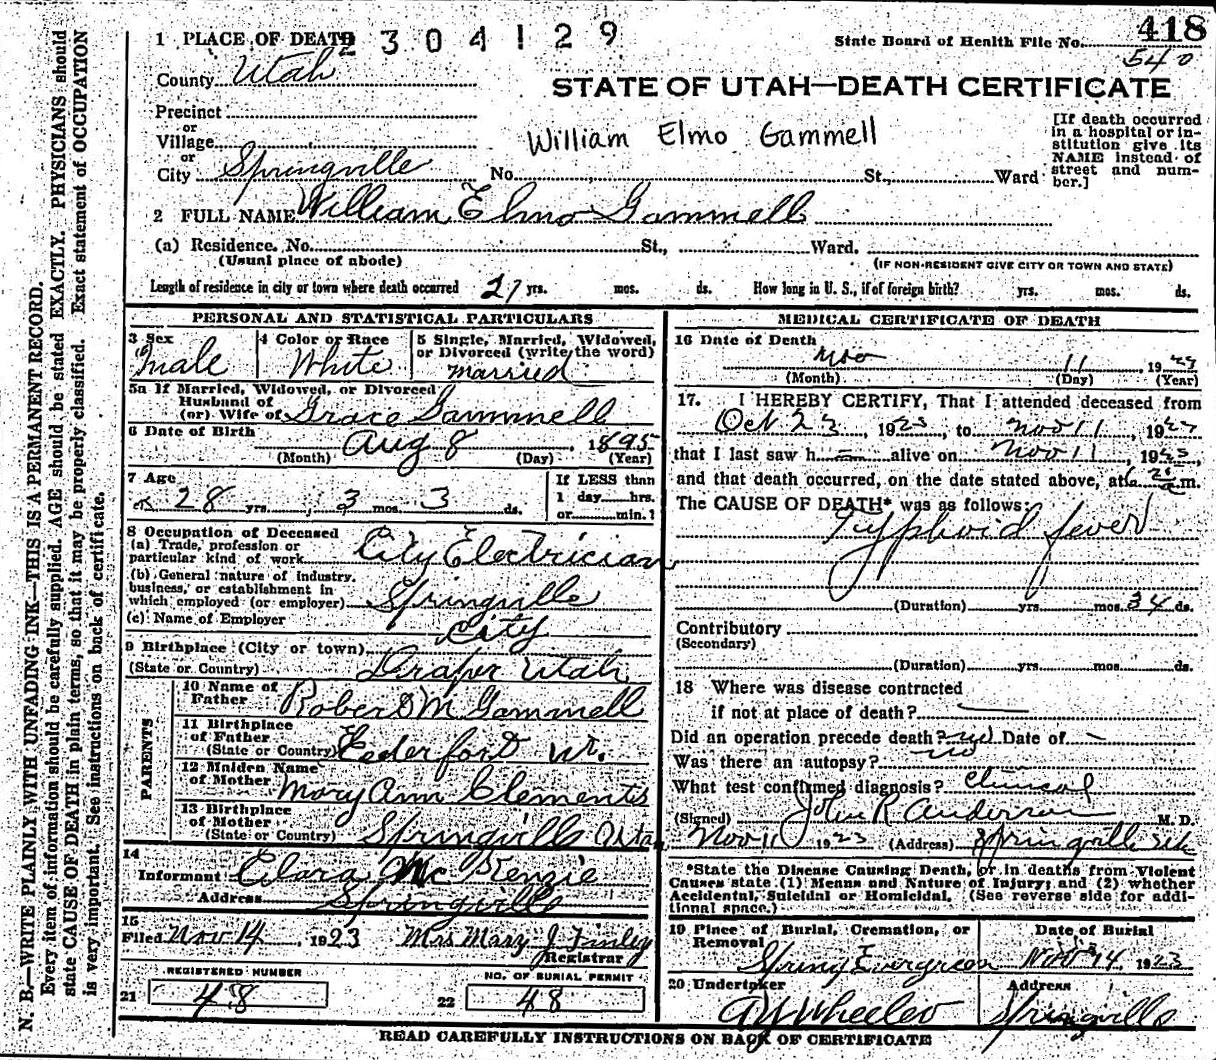 418
1 PLACE OF DEATH 2 3 0 4 1 2 9 State Board of Health File No.
540
County Utah
STATE OF UTAH—DEATH CERTIFICATE
Precinct
or
Village
William Elmo Gammell
[If death occurred in a hospital or institution give its NAME instead of street and number.]
or
City Springville No. St., Ward
2 FULL NAME William Elmo Gammell
(a) Residence. No. St., Ward.
(Usual place of abode) (IF NON-RESIDENT GIVE CITY OR TOWN AND STATE)
Length of residence in city or town where death occurred 27 yrs. mos. ds. How long in U. S., if of foreign birth? yrs. mos. ds.
PERSONAL AND STATISTICAL PARTICULARS
3 Sex Male
4 Color or Race White
5 Single, Married, Widowed, or Divorced (write the word) Married
5a If Married, Widowed, or Divorced
Husband of
(or) Wife of Grace Gammell
6 Date of Birth Aug 8, 1895
(Month) (Day) (Year)
7 Age 28 yrs. 3 mos. 3 ds.
If LESS than
1 day hrs.
or min.?
8 Occupation of Deceased
(a) Trade, profession or particular kind of work City Electrician
(b) General nature of industry, business, or establishment in which employed (or employer) Springville
(c) Name of Employer City
9 Birthplace (City or town)
(State or Country) Draper Utah
PARENTS
10 Name of Father Robert M Gammell
11 Birthplace of Father
(State or Country) Ut.
12 Maiden Name of Mother Mary Ann Clements
13 Birthplace of Mother
(State or Country) Springville Utah
14
Informant Clara McKenzie
Address Springville
15
Filed Nov 14, 1923 Mrs Mary J Finley
Registrar
REGISTERED NUMBER
21 48
NO. OF BURIAL PERMIT
22 48
MEDICAL CERTIFICATE OF DEATH
16 Date of Death Nov 11, 1923
(Month) (Day) (Year)
17. I HEREBY CERTIFY, That I attended deceased from
Oct 23, 1923, to Nov 11, 1923
that I last saw h alive on Nov 11, 1923,
and that death occurred, on the date stated above, at m.
The CAUSE OF DEATH* was as follows:
Typhoid fever
(Duration) yrs. mos. 34 ds.
Contributory
(Secondary)
(Duration) yrs. mos. ds.
18 Where was disease contracted
if not at place of death?
Did an operation precede death? no Date of
Was there an autopsy? no
What test confirmed diagnosis? Clinical
(Signed) John R Anderson M. D.
Nov 11 1923 (Address) Springville Ut
*State the Disease Causing Death, or in deaths from Violent
Causes state (1) Means and Nature of Injury; and (2) whether
Accidental, Suicidal or Homicidal. (See reverse side for additional space.)
19 Place of Burial, Cremation, or Removal Spring Evergreen
Date of Burial Nov 14, 1923
20 Undertaker A Y Wheeler
Address Springville
READ CAREFULLY INSTRUCTIONS ON BACK OF CERTIFICATE
N. B.—WRITE PLAINLY WITH UNFADING INK—THIS IS A PERMANENT RECORD.
Every item of information should be carefully supplied. AGE should be stated EXACTLY. PHYSICIANS should
state CAUSE OF DEATH in plain terms, so that it may be properly classified. Exact statement of OCCUPATION
is very important. See instructions on back of certificate.